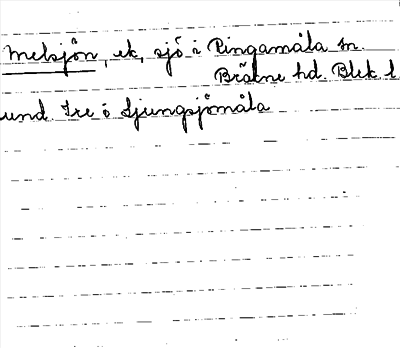 Melsjön, ek, sjö i Ringamåla sn.
Bräkne hd. Blek l
und. Ire ö Ljungsjömåla